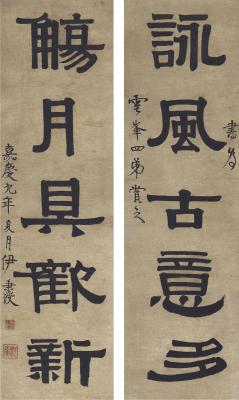 書為
詠風古意多
雲峯四弟賞之
觴月具歡新
嘉慶九年夏月伊秉綬